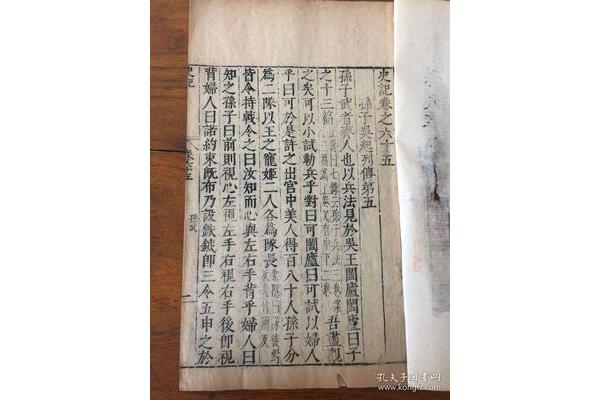 史記卷之六十五
孫子吳起列傳第五
孫子武者齊人也以兵法見於吳王闔廬闔廬曰子
之十三篇 吾盡觀
之矣可以小試勒兵乎對曰可闔廬曰可試以婦人
乎曰可於是許之出宮中美人得百八十人孫子分
爲二隊以王之寵姬二人各爲隊長
皆令持戟令之曰汝知而心與左右手背乎婦人曰
知之孫子曰前則視心左視左手右視右手後卽視
背婦人曰諾約束旣布乃設鈇鉞卽三令五申之於
史記
一
孔夫子旧书网
www.kongfz.com